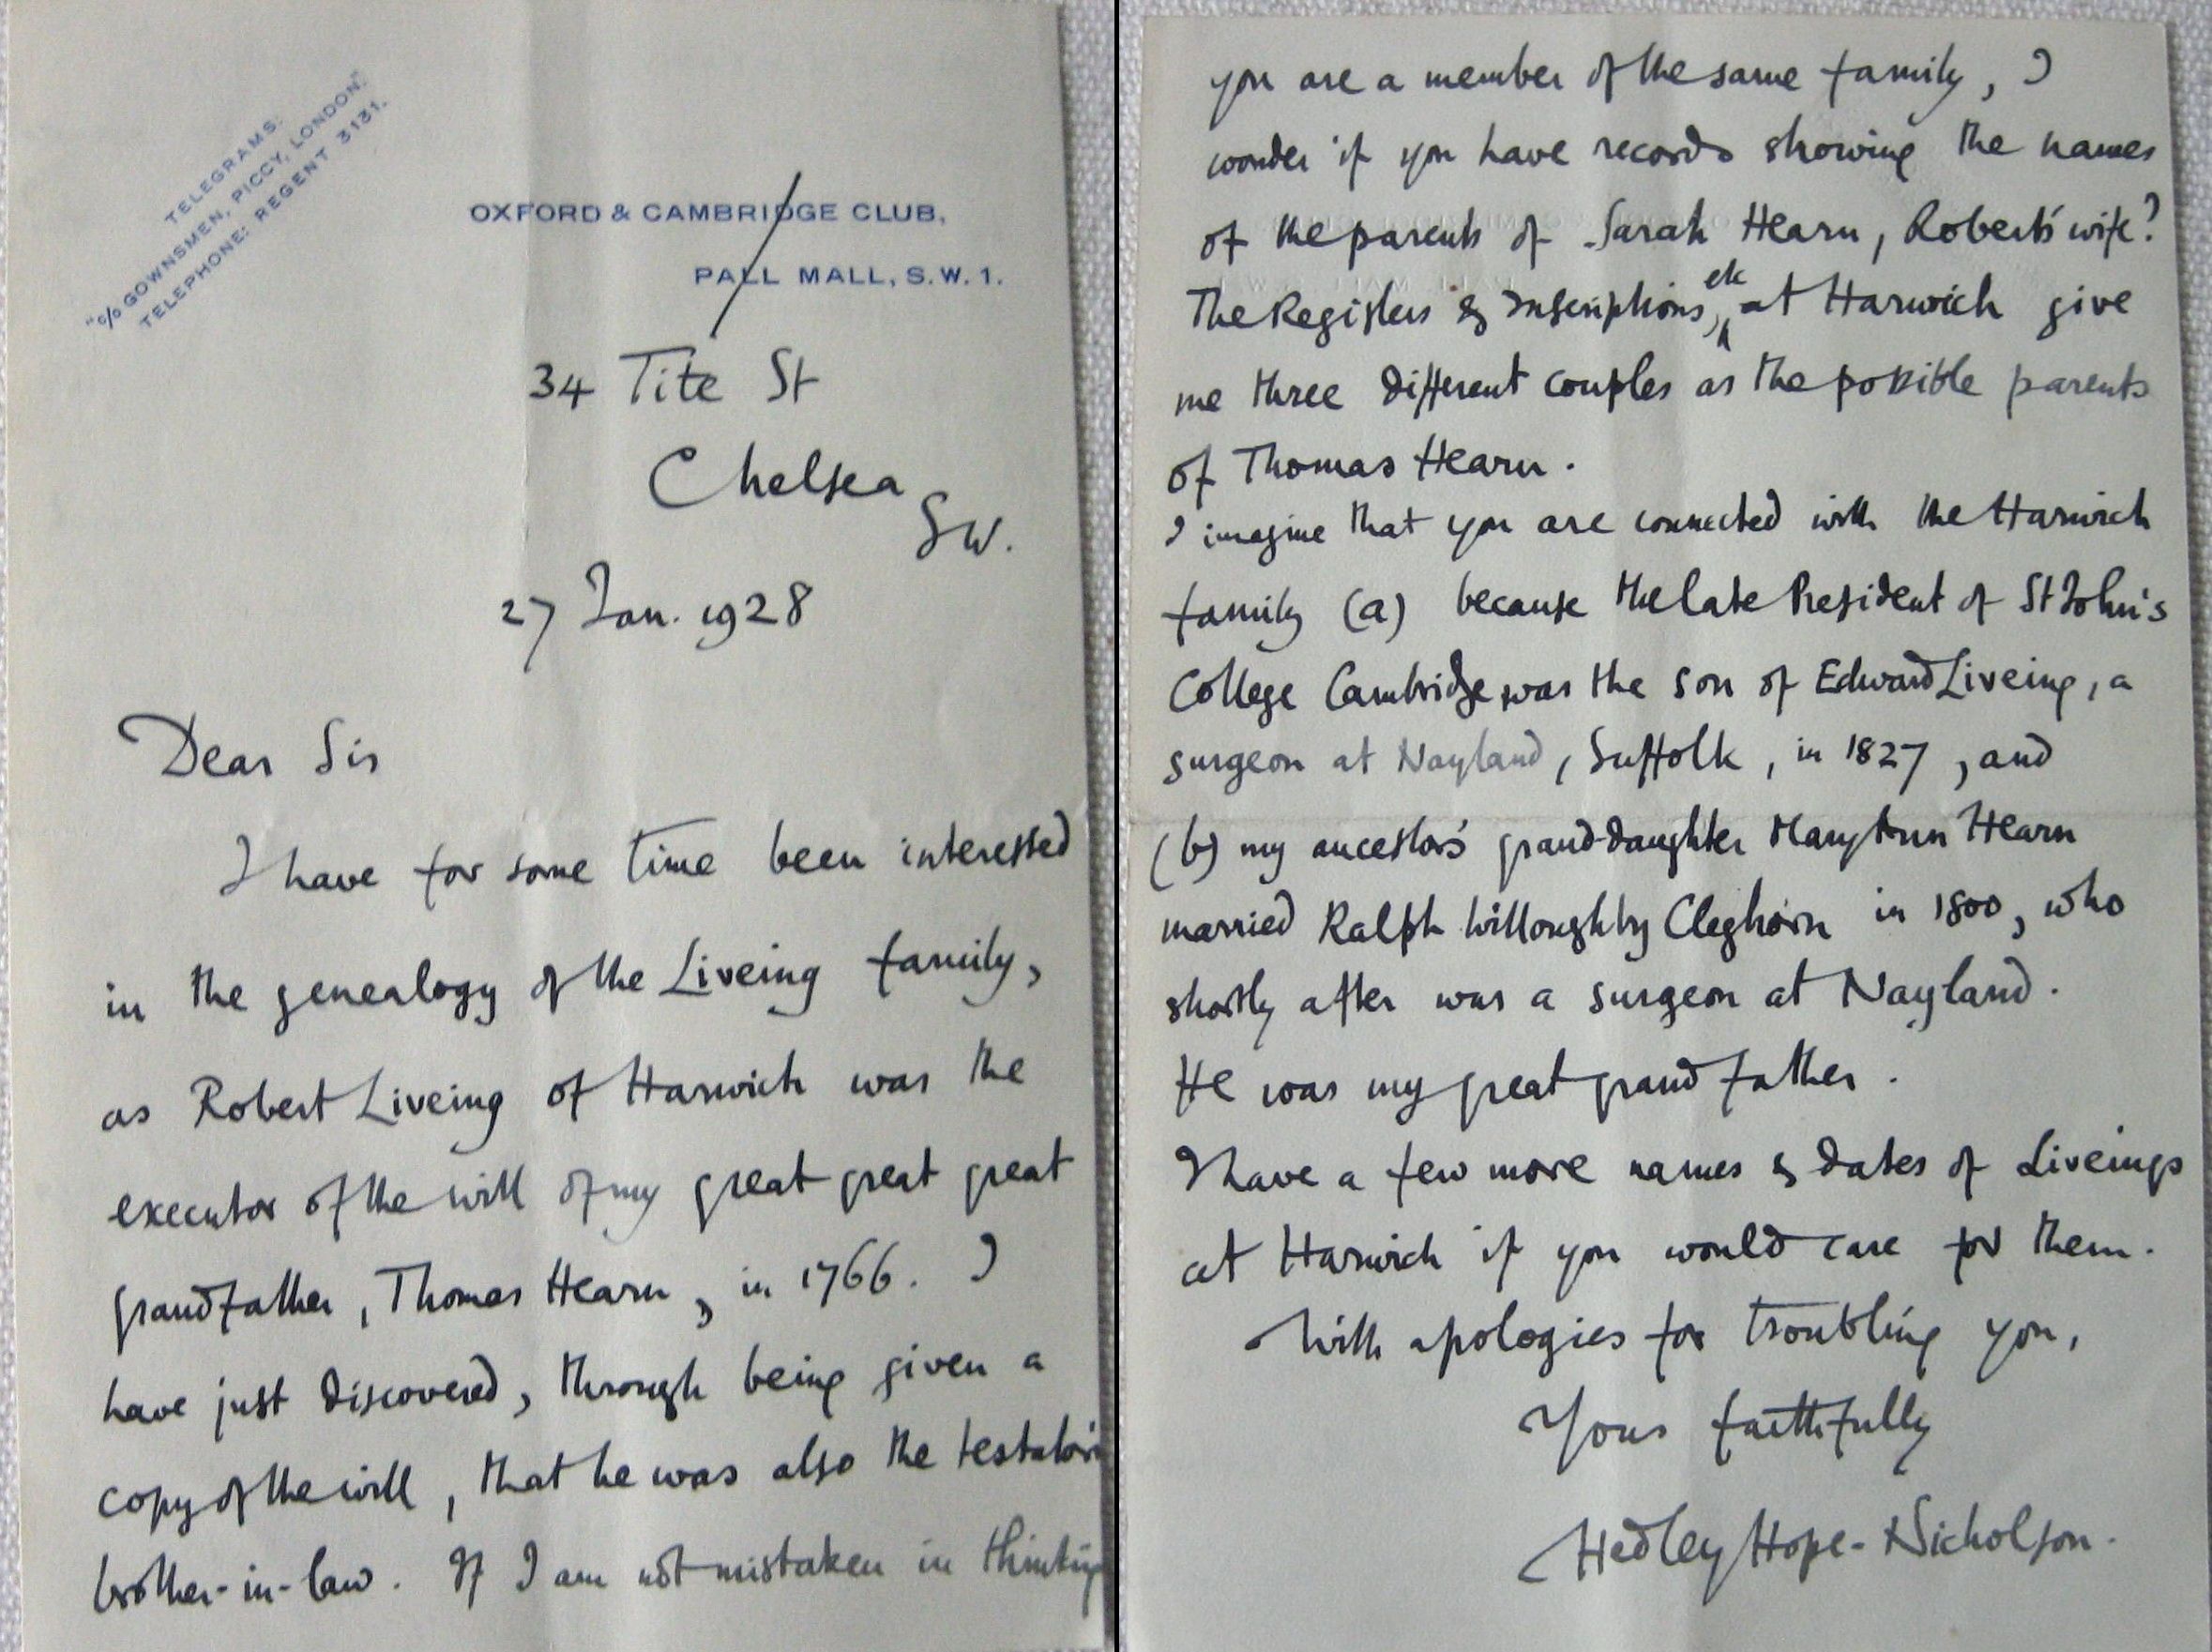 TELEGRAMS:
"C/O GOWNSMEN, PICCY, LONDON."
TELEPHONE: REGENT 3131.
OXFORD & CAMBRIDGE CLUB,
PALL MALL, S.W.1.
34 Tite St
Chelsea
SW.
27 Jan. 1928
Dear Sir
I have for some time been interested
in the genealogy of the Liveing family,
as Robert Liveing of Harwich was the
executor of the will of my great great great
grandfather, Thomas Hearn, in 1766. I
have just discovered, through being given a
copy of the will, that he was also the testator's
brother-in-law. If I am not mistaken in thinking
you are a member of the same family, I
wonder if you have records showing the names
of the parents of Sarah Hearn, Robert's wife?
The Registers & Inscriptions, etc at Harwich give
me three different couples as the possible parents
of Thomas Hearn.
I imagine that you are connected with the Harwich
family (a) because the late President of St John's
College Cambridge was the son of Edward Liveing, a
surgeon at Nayland, Suffolk, in 1827, and
(b) my ancestor's grand-daughter Mary Ann Hearn
married Ralph Willoughby Cleghorn in 1800, who
shortly after was a surgeon at Nayland.
He was my great grandfather.
I have a few more names & dates of Liveings
at Harwich if you would care for them.
With apologies for troubling you,
Yours faithfully
Hedley Hope-Nicholson.